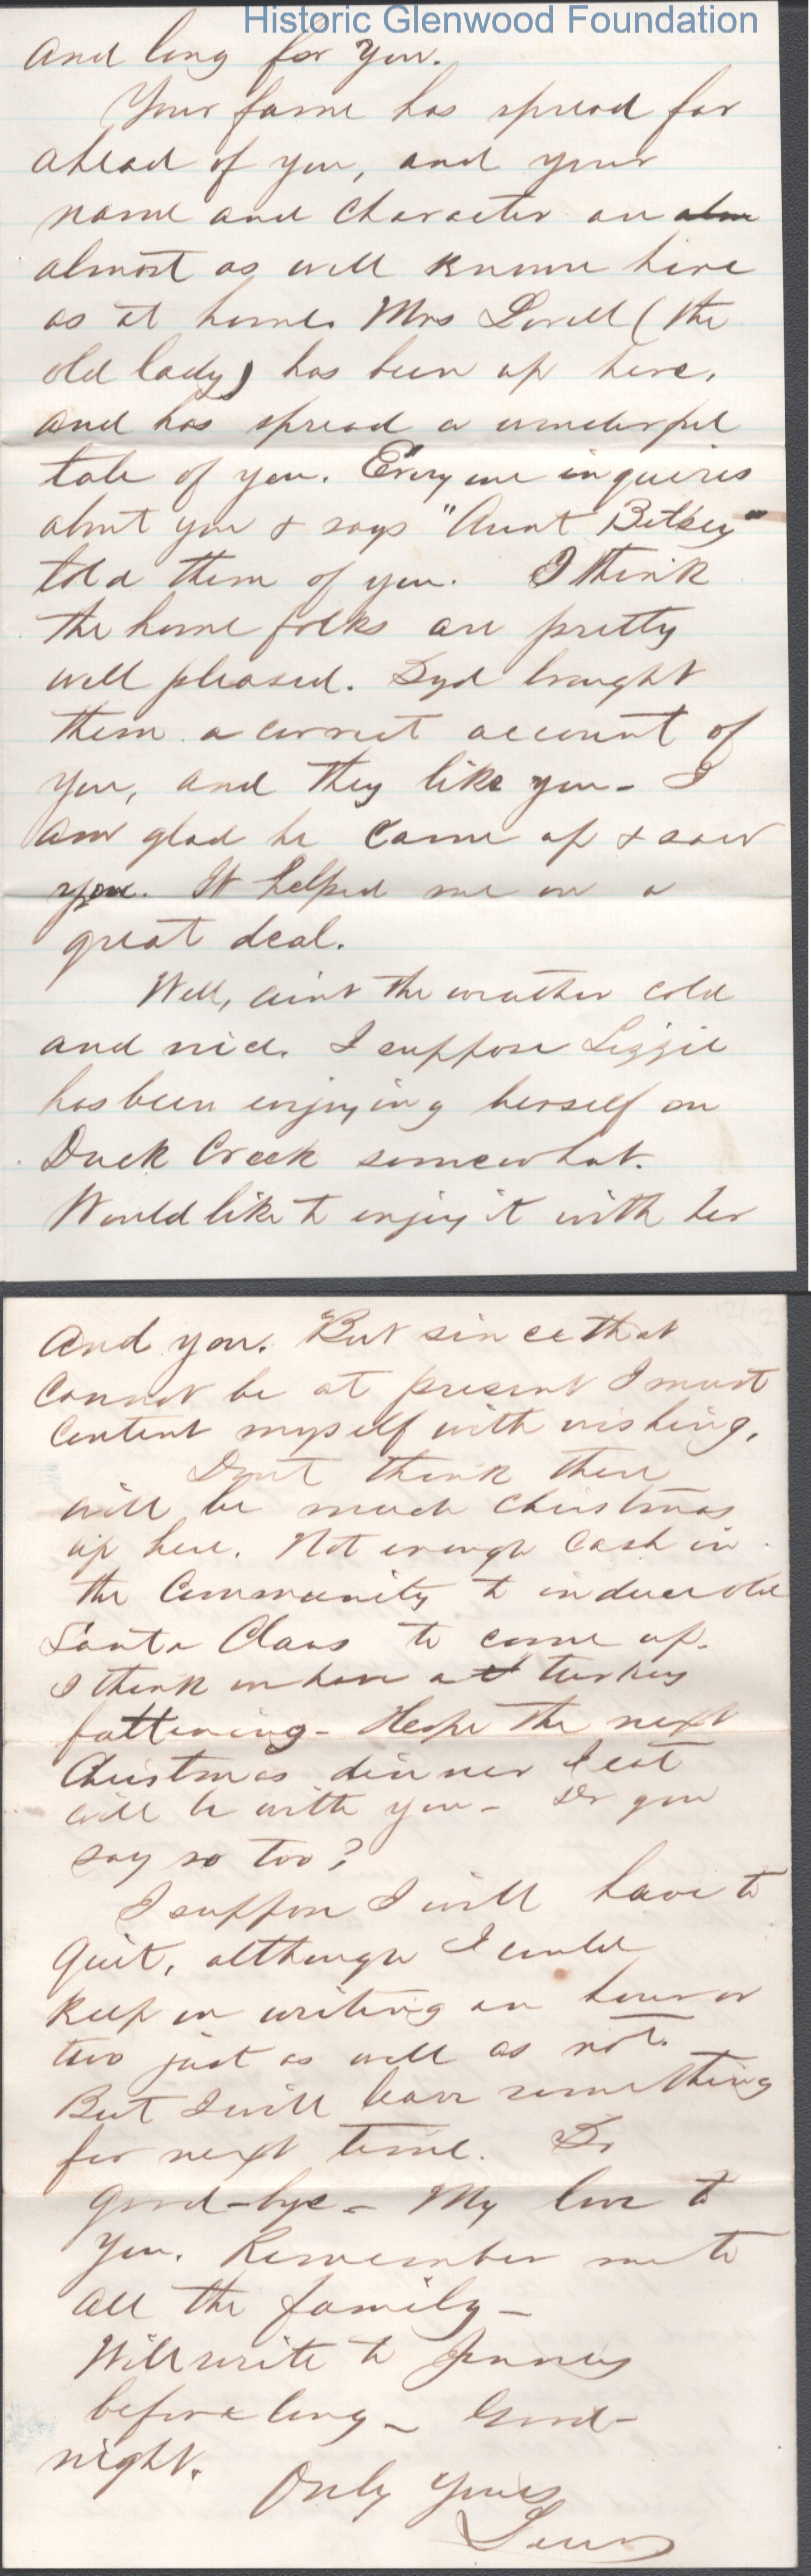 Historic Glenwood Foundation
And long for you.
Your fame has spread far
ahead of you, and your
name and character are alm
almost as well known here
as at home. Mrs Lovell (the
old lady) has been up here,
and has spread a wonderful
tale of you. Every one inquires
about you & says "Aunt Betsey"
told them of you. I think
the home folks are pretty
well pleased. Syd brought
them a correct account of
you, and they like you - I
am glad he came up & saw
you. It helped me on a
great deal.
Well, aint the weather cold
and nice. I suppose Lizzie
has been enjoying herself on
Duck Creek somewhat.
Would like to enjoy it with her
and you. But since that
cannot be at present I must
content myself with wishing.
Dont think there
will be much Christmas
up here. Not enough cash in
the Community to induce old
Santa Claus to come up.
I think we have a turkey
fattening - Hope the next
Christmas dinner I eat
will be with you - Do you
say so too?
I suppose I will have to
quit, although I could
keep on writing an hour or
two just as well as not.
But I will leave something
for next time. So
good-bye - My love to
you. Remember me to
all the family -
Will write to
before long - Good-
night.
Only yours
Lewis